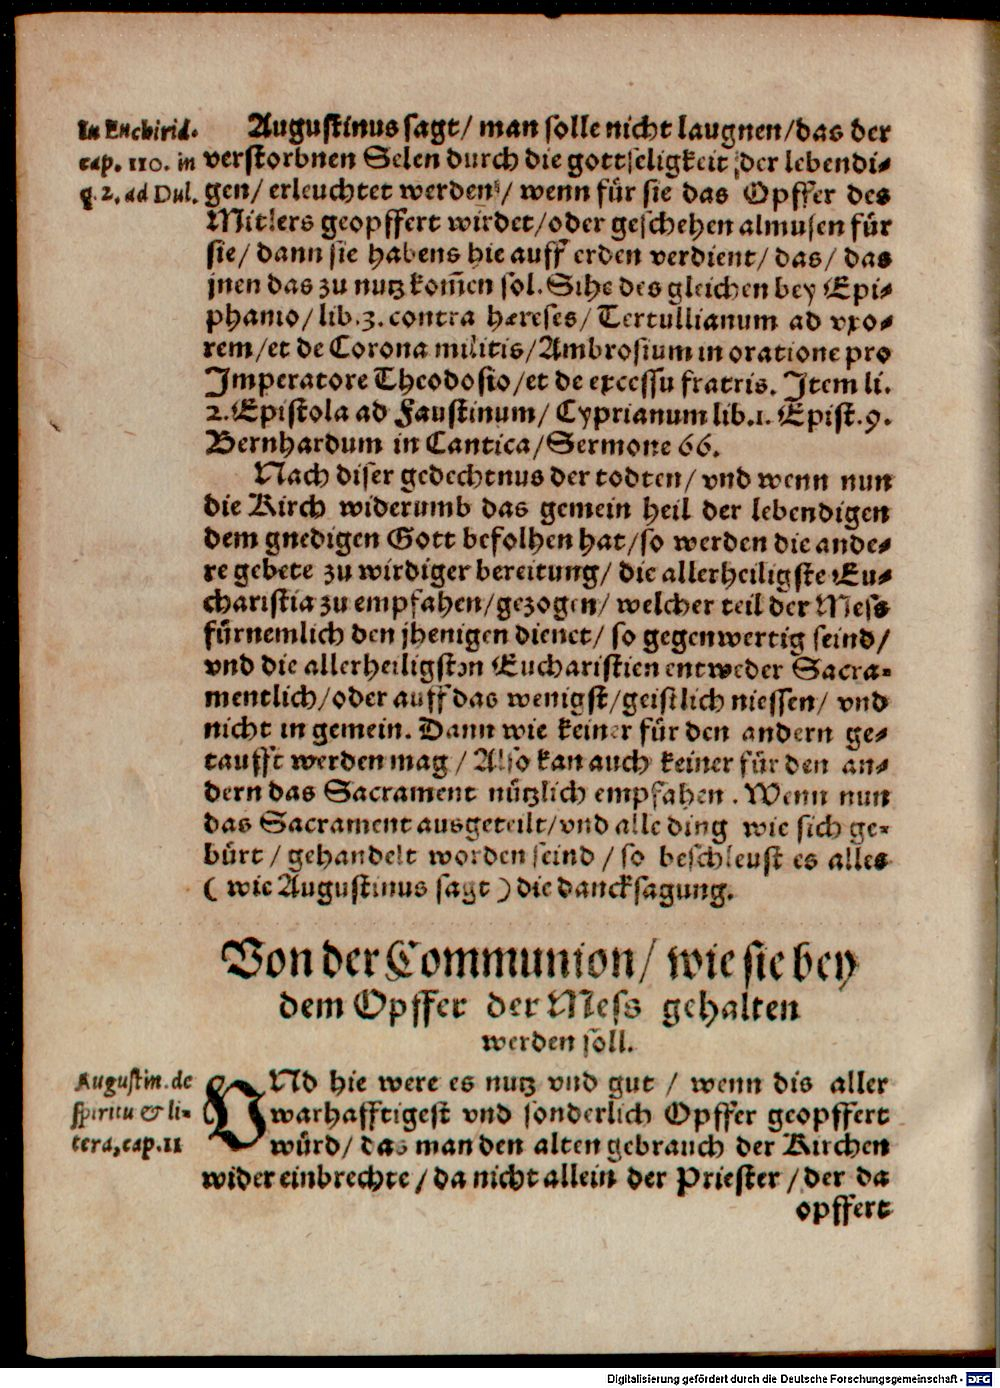 In Enchirid.
cap. 110. in
q. 2. ad Dul.
Augustinus sagt/ man solle nicht laugnen/das der
verstorbnen Selen durch die gottseligkeit der lebendi-
gen/ erleuchtet werden/ wenn für sie das Opffer des
Mitlers geopffert wirdet/oder geschehen almusen für
sie/ dann sie habens hie auff erden verdient/ das/ das
jnen das zu nutz kom̄en sol. Sihe des gleichen bey Epi-
phanio/lib.3. contra hæreses/ Tertullianum ad vxo-
rem/et de Corona militis/Ambrosium in oratione pro
Imperatore Theodosio/et de excessu fratris. Item li.
2. Epistola ad Faustinum/ Cyprianum lib.1. Epist.9.
Bernhardum in Cantica/Sermone 66.
Nach diser gedechtnus der todten/ vnd wenn nun
die Kirch widerumb das gemein heil der lebendigen
dem gnedigen Gott befolhen hat/so werden die ande-
re gebete zu wirdiger bereitung/ die allerheiligste Eu-
charistia zu empfahen/gezogen/ welcher teil der Mess
fürnemlich den jhenigen dienet/ so gegenwertig seind/
vnd die allerheiligsten Eucharistien entweder Sacra-
mentlich/oder auff das wenigst/geistlich niessen/ vnd
nicht in gemein. Dann wie keiner für den andern ge-
taufft werden mag/ Also kan auch keiner für den an-
dern das Sacrament nützlich empfahen. Wenn nun
das Sacrament ausgeteilt/vnd alle ding wie sich ge-
bürt/ gehandelt worden seind/ so beschleust es alles
(wie Augustinus sagt) die dancksagung.
Von der Communion/ wie sie bey
dem Opffer der Mess gehalten
werden soll.
Augustin. de
spiritu & li-
tera, cap. 11
VNd hie were es nutz vnd gut/ wenn dis aller
warhafftigest vnd sonderlich Opffer geopffert
würd/ das man den alten gebrauch der Kirchen
wider einbrechte/ da nicht allein der Priester/der da
opffert
Digitalisierung gefördert durch die Deutsche Forschungsgemeinschaft - DFG